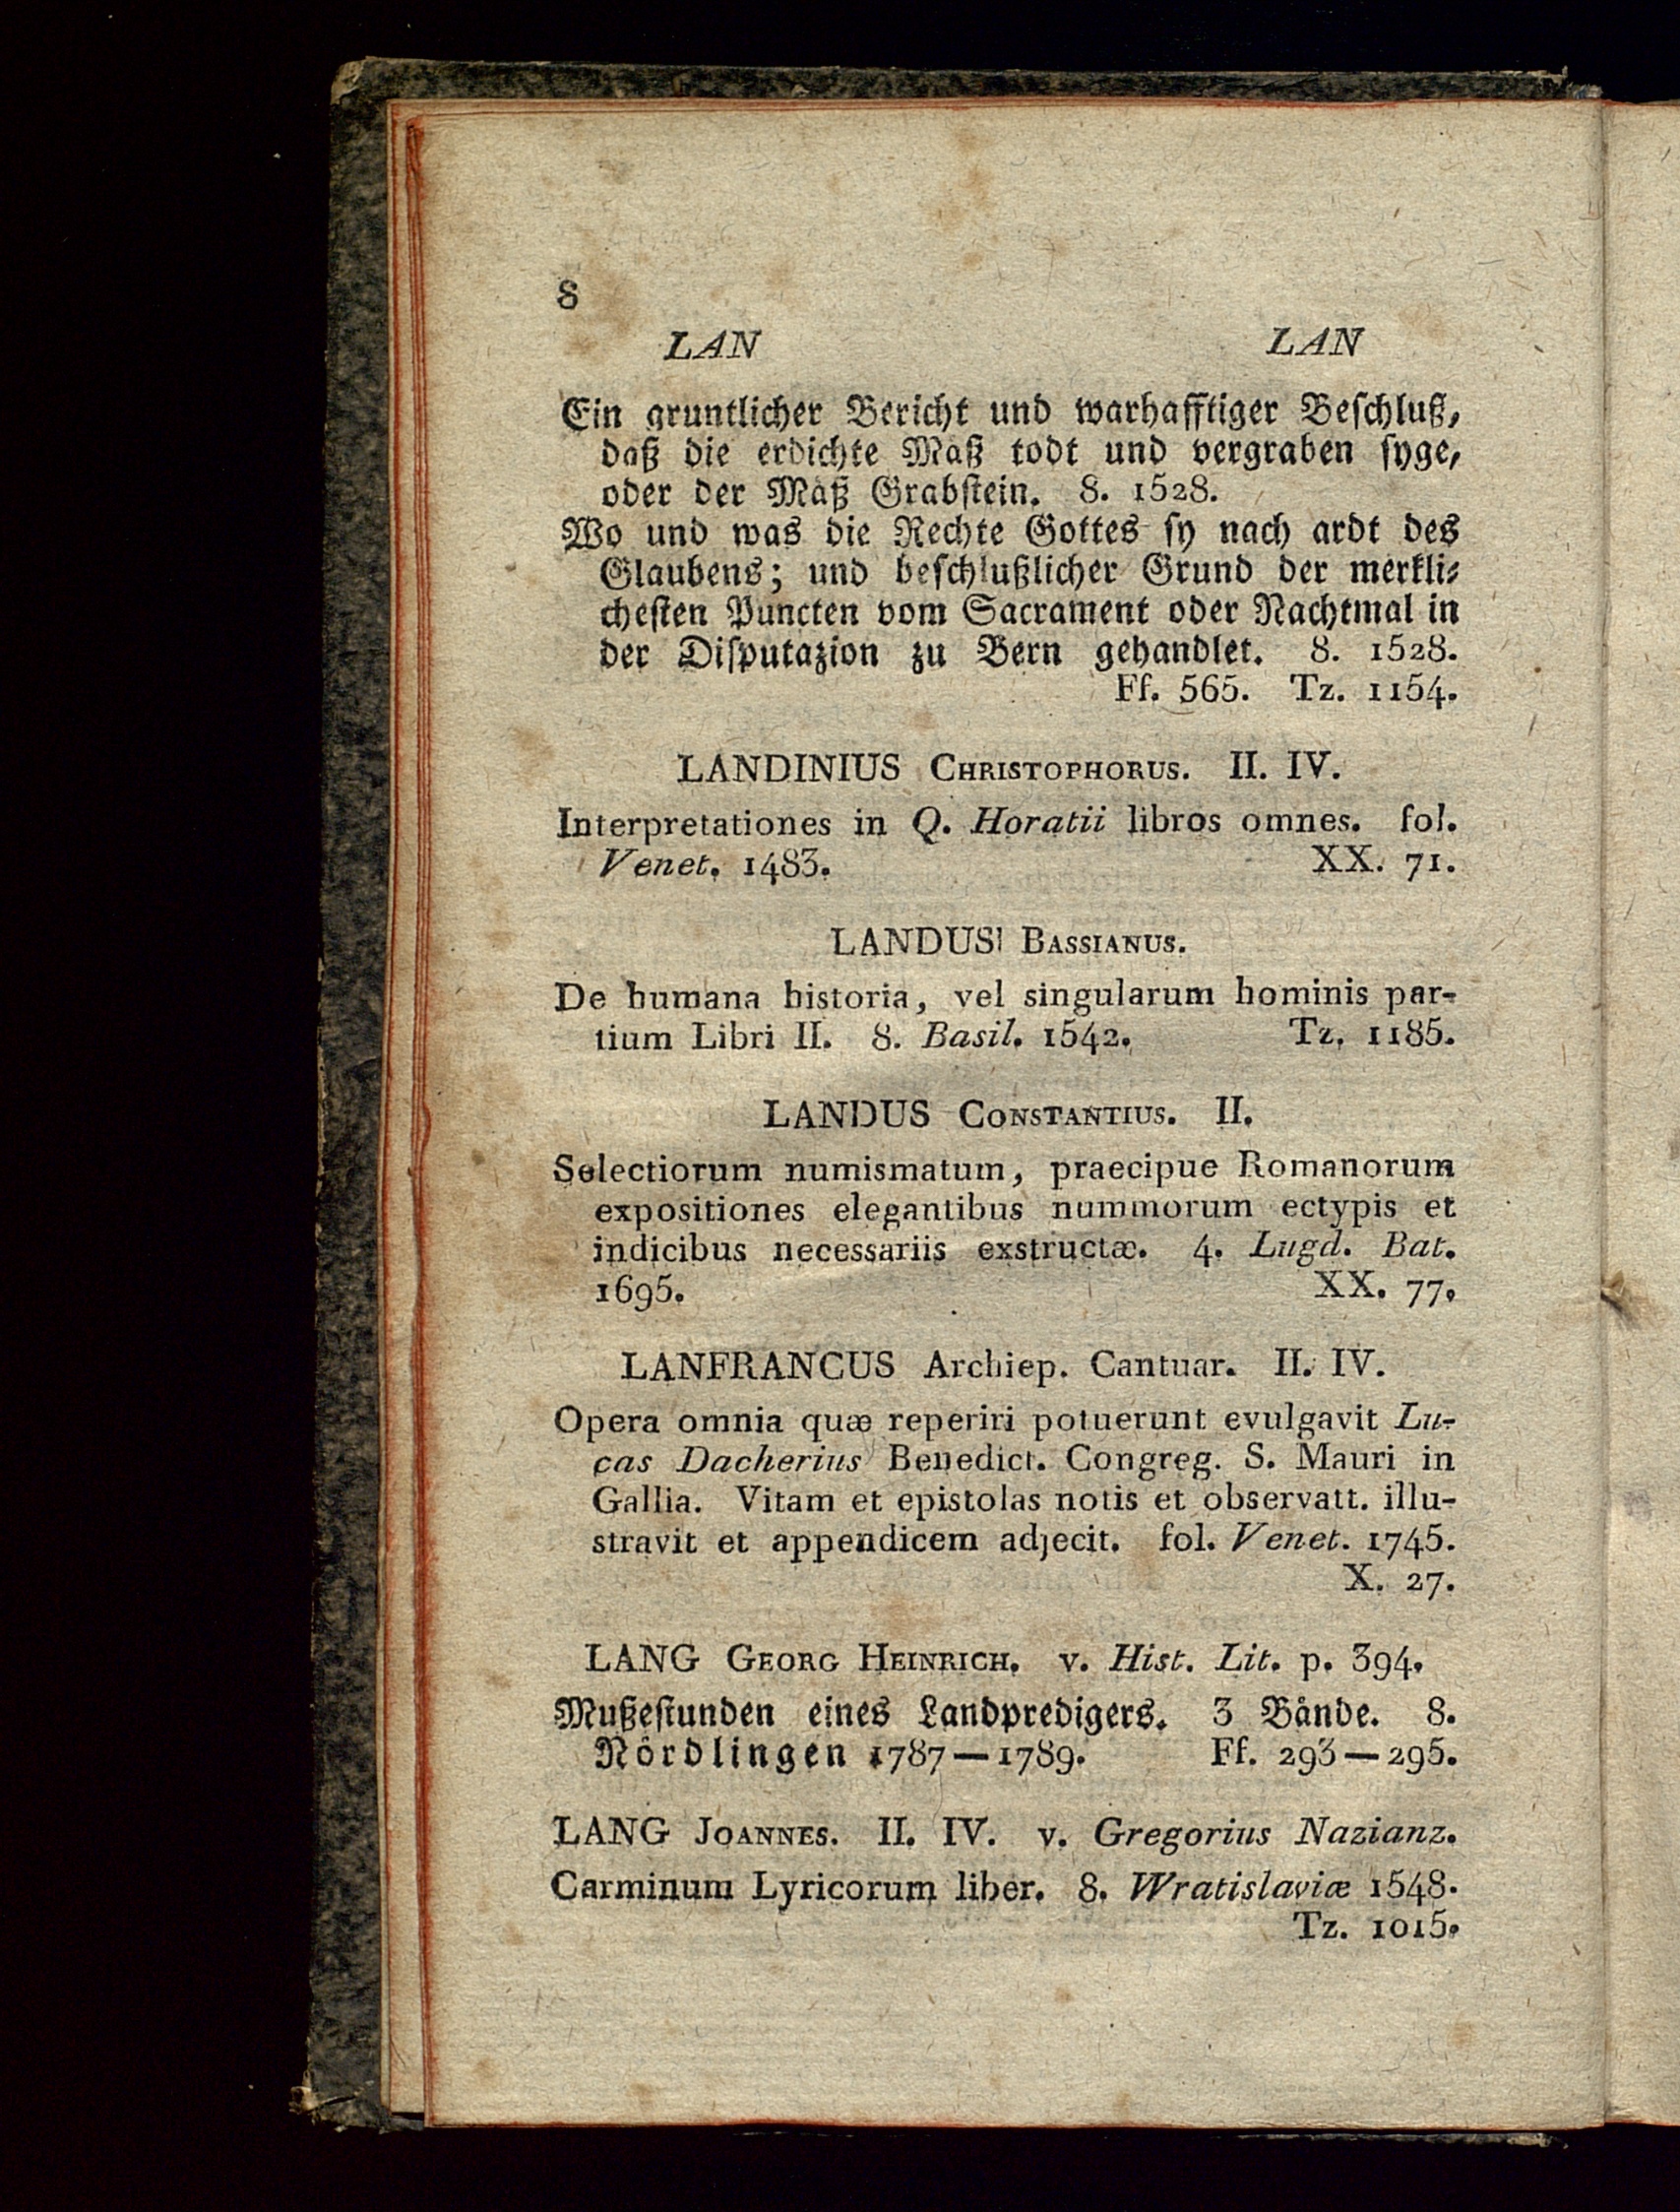 8
LAN LAN
Ein gruntlicher Bericht und warhafftiger Beschluß,
daß die erdichte Maß todt und vergraben syge,
oder der Maß Grabstein. 8. 1528.
Wo und was die Rechte Gottes sy nach ardt des
Glaubens; und beschlußlicher Grund der merkli-
chesten Puncten vom Sacrament oder Nachtmal in
der Disputazion zu Bern gehandlet. 8. 1528.
Ff. 565. Tz. 1154.
LANDINIUS CHRISTOPHORUS. II. IV.
Interpretationes in Q. Horatii libros omnes. fol.
Venet. 1483. XX. 71.
LANDUS BASSIANUS.
De humana historia, vel singularum hominis par-
tium Libri II. 8. Basil. 1542. Tz. 1185.
LANDUS CONSTANTIUS. II.
Selectiorum numismatum, praecipue Romanorum
expositiones elegantibus nummorum ectypis et
indicibus necessariis exstructæ. 4. Lugd. Bat.
1695. XX. 77.
LANFRANCUS Archiep. Cantuar. II. IV.
Opera omnia quæ reperiri potuerunt evulgavit Lu-
cas Dacherius Benedict. Congreg. S. Mauri in
Gallia. Vitam et epistolas notis et observatt. illu-
stravit et appendicem adjecit. fol. Venet. 1745.
X. 27.
LANG GEORG HEINRICH. v. Hist. Lit. p. 394.
Mußestunden eines Landpredigers. 3 Bände. 8.
Nördlingen 1787—1789. Ff. 293—295.
LANG JOANNES. II. IV. v. Gregorius Nazianz.
Carminum Lyricorum liber. 8. Wratislaviæ 1548.
Tz. 1015.